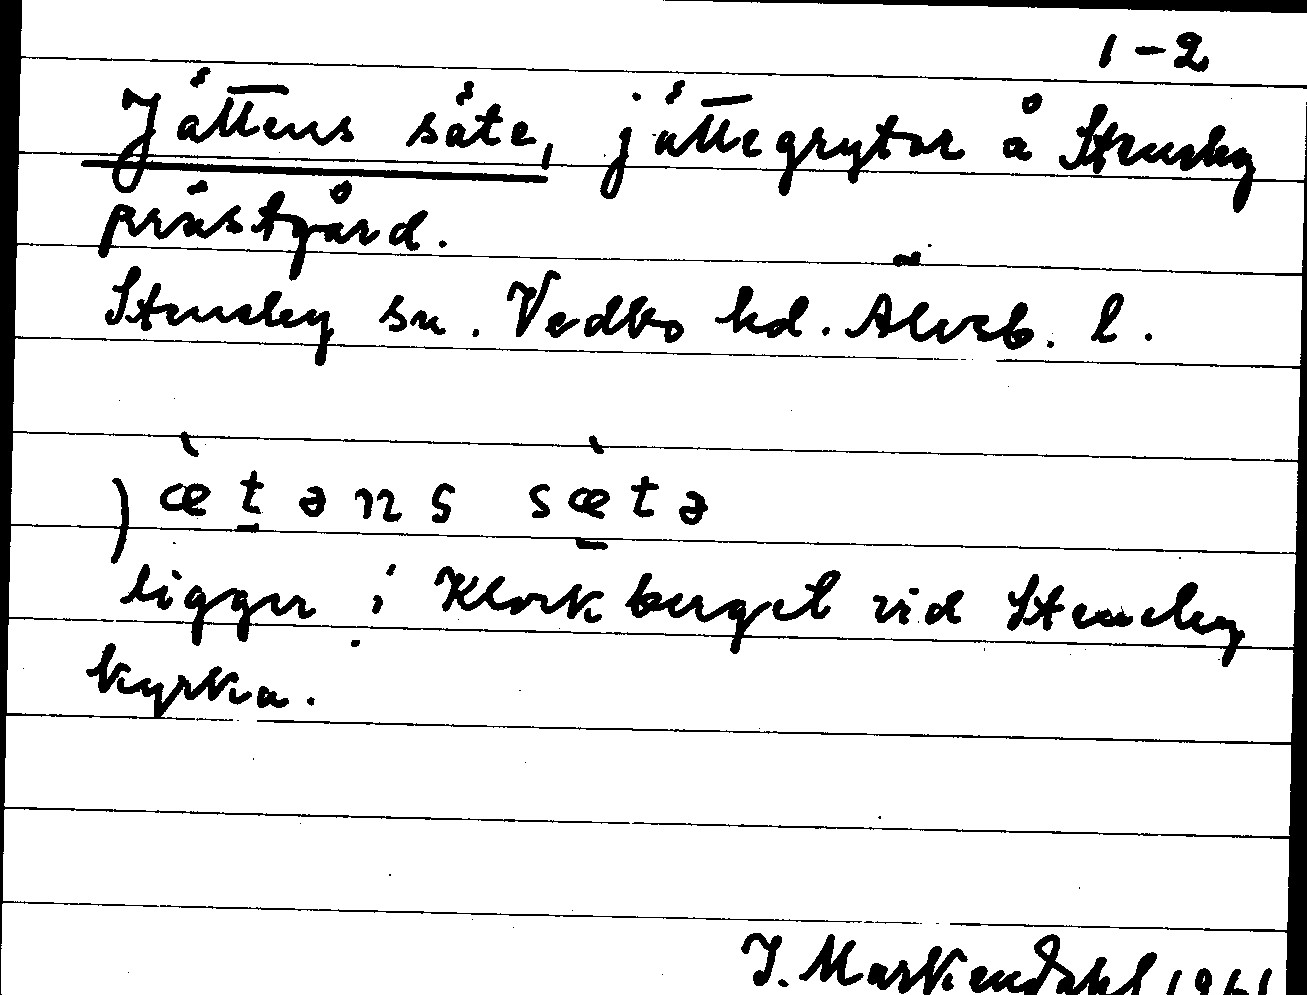 1-2
Jättens säte, jättegrytor å Steneby
prästgård.
Steneby sn. Vedbo hd. Älvsb. l.
) æ̀t̲əns sæ̲̀tə
ligger i Klockberget vid Steneby
kyrka.
J. Markendahl 1961